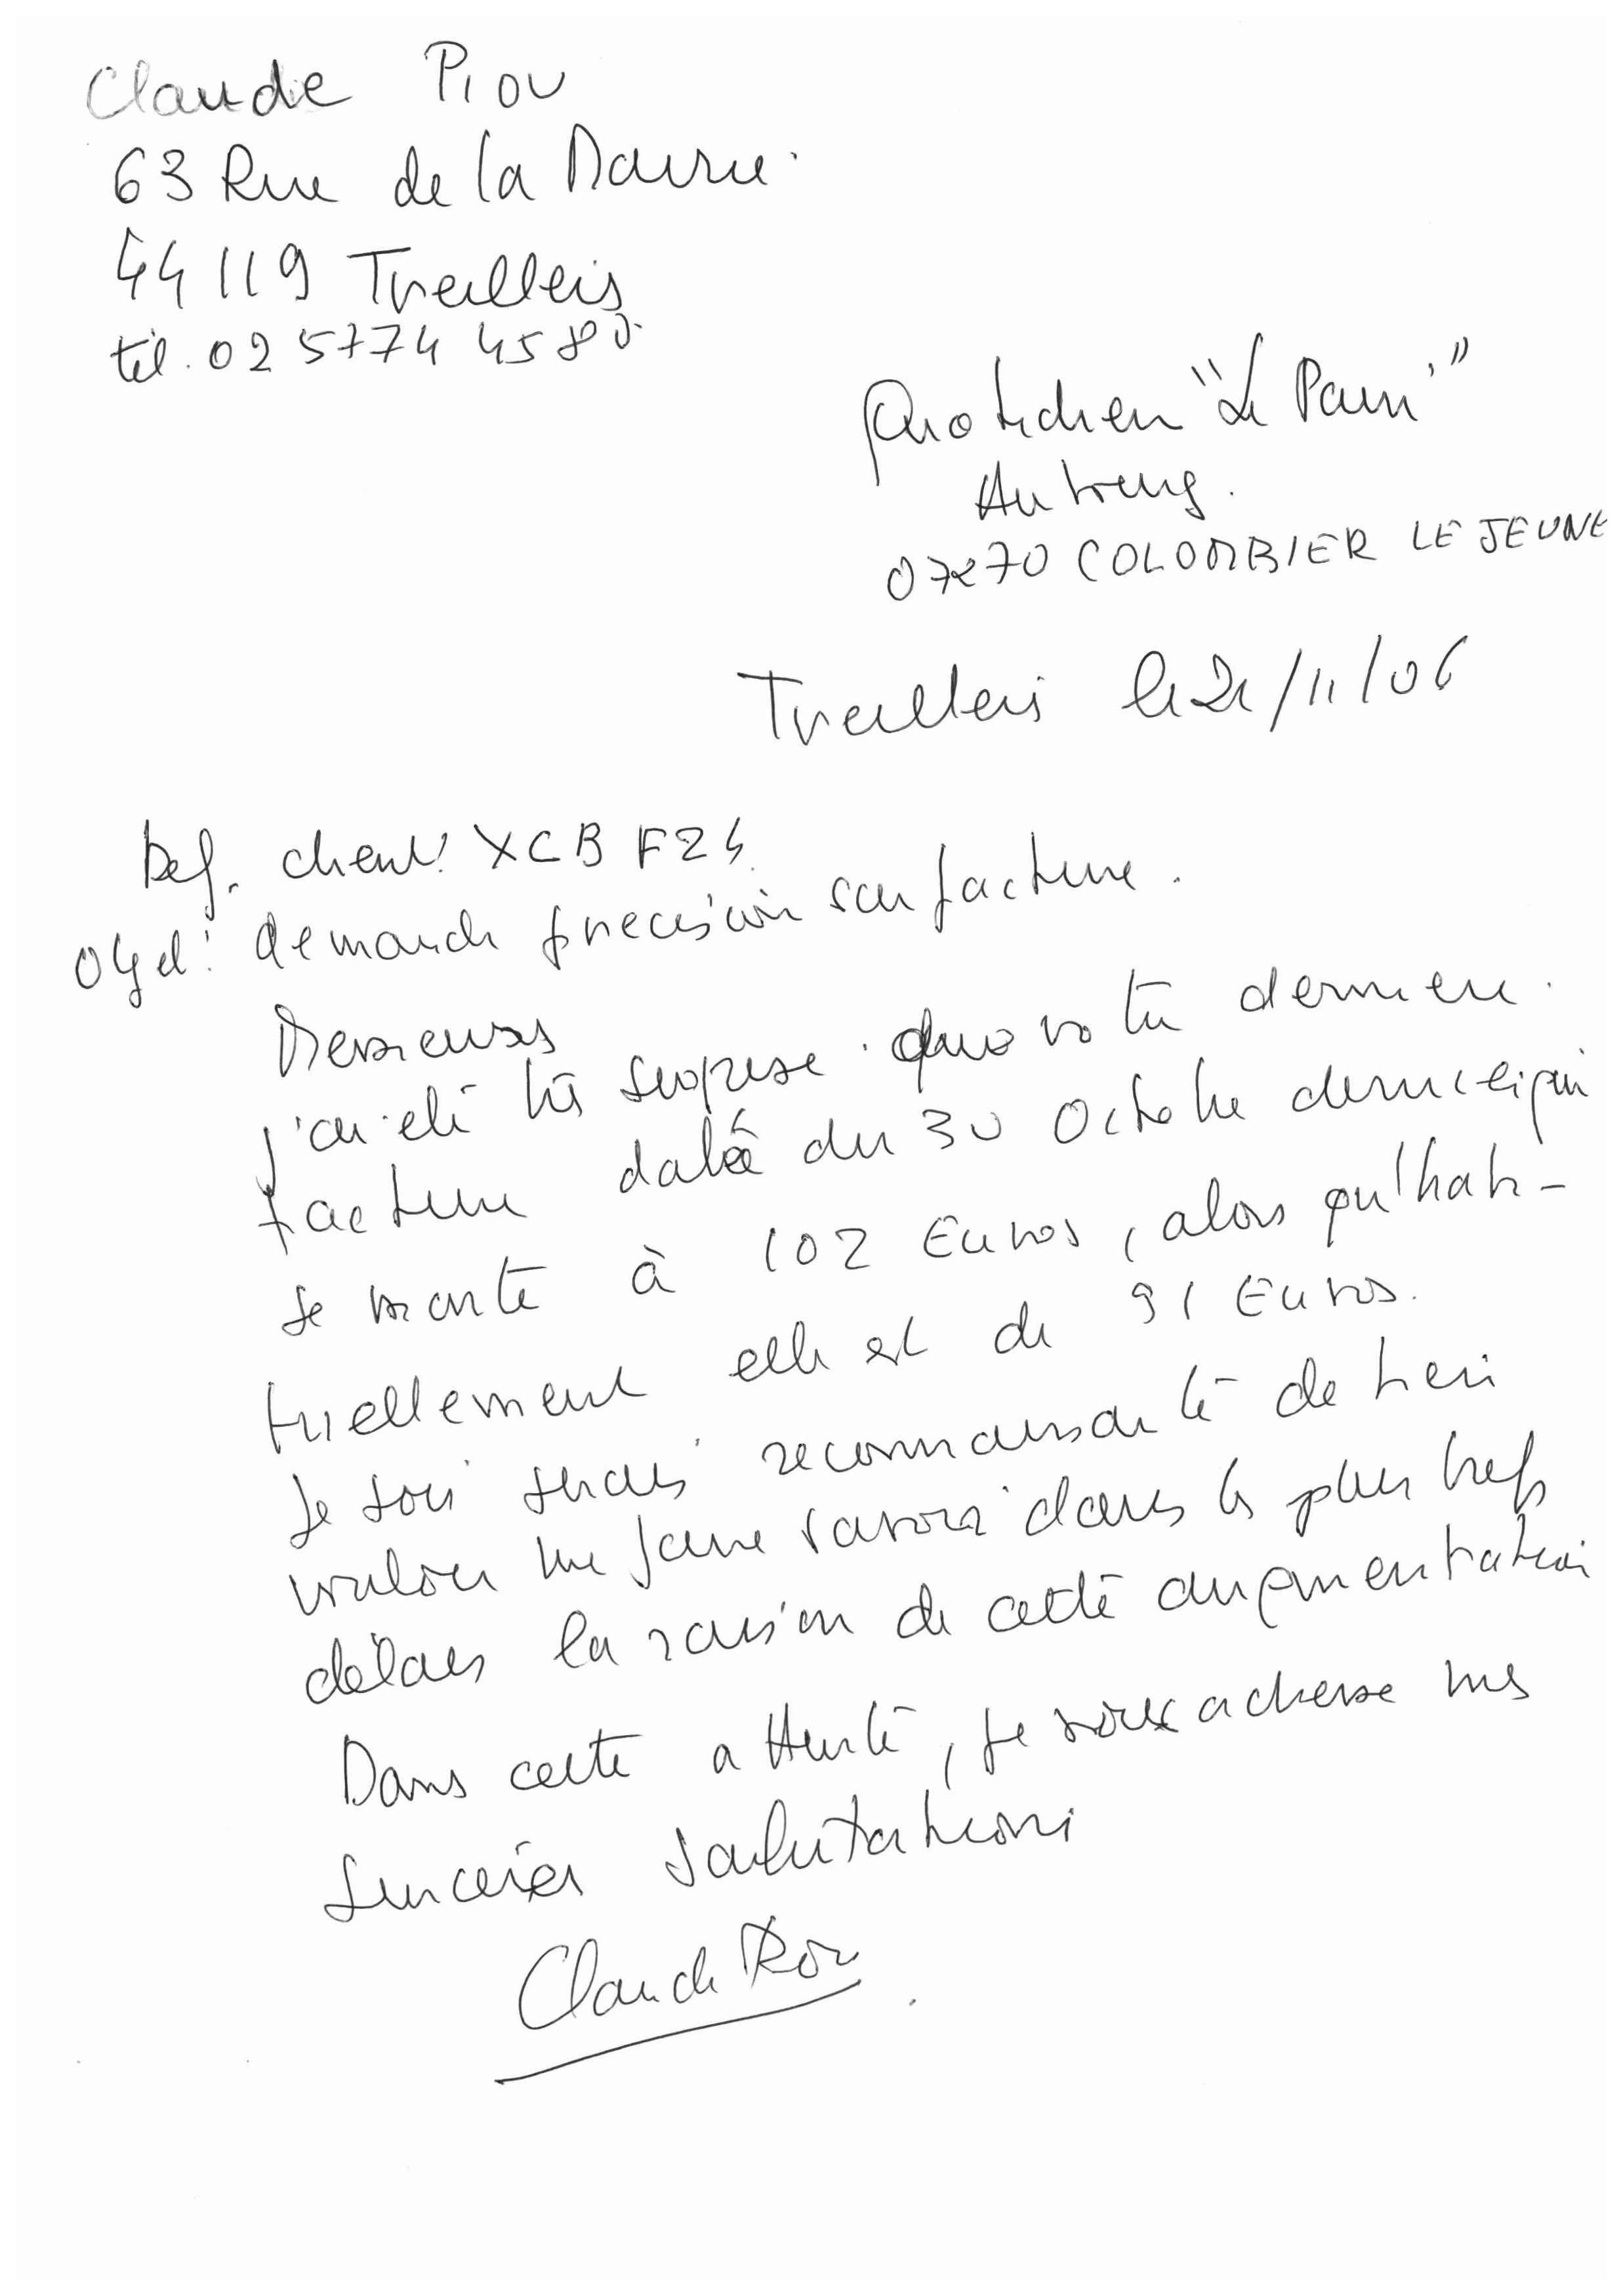 Claude Piou
63 Rue de la Mairie.
44119 Treillers
tél. 02 57 74 45 80.
Quotidien "Le Pain"
07270 COLOMBIER LE JEUNE
Treillers le 21/11/06
Ref. client: XCBFZ4
Objet: demande precision sur facture.
Messieurs
j'ai été très surprise que votre derniere
facture datée du 30 Octobre dernier qui
se monte à 102 Euros, alors qu'habi-
tuellement elle est de 91 Euros.
Je vous serais reconnaissante de bien
vouloir me faire savoir dans les plus brefs
délais la raison de cette augmentation
Dans cette attente, je vous adresse mes
sinceres salutations
Claude Piou